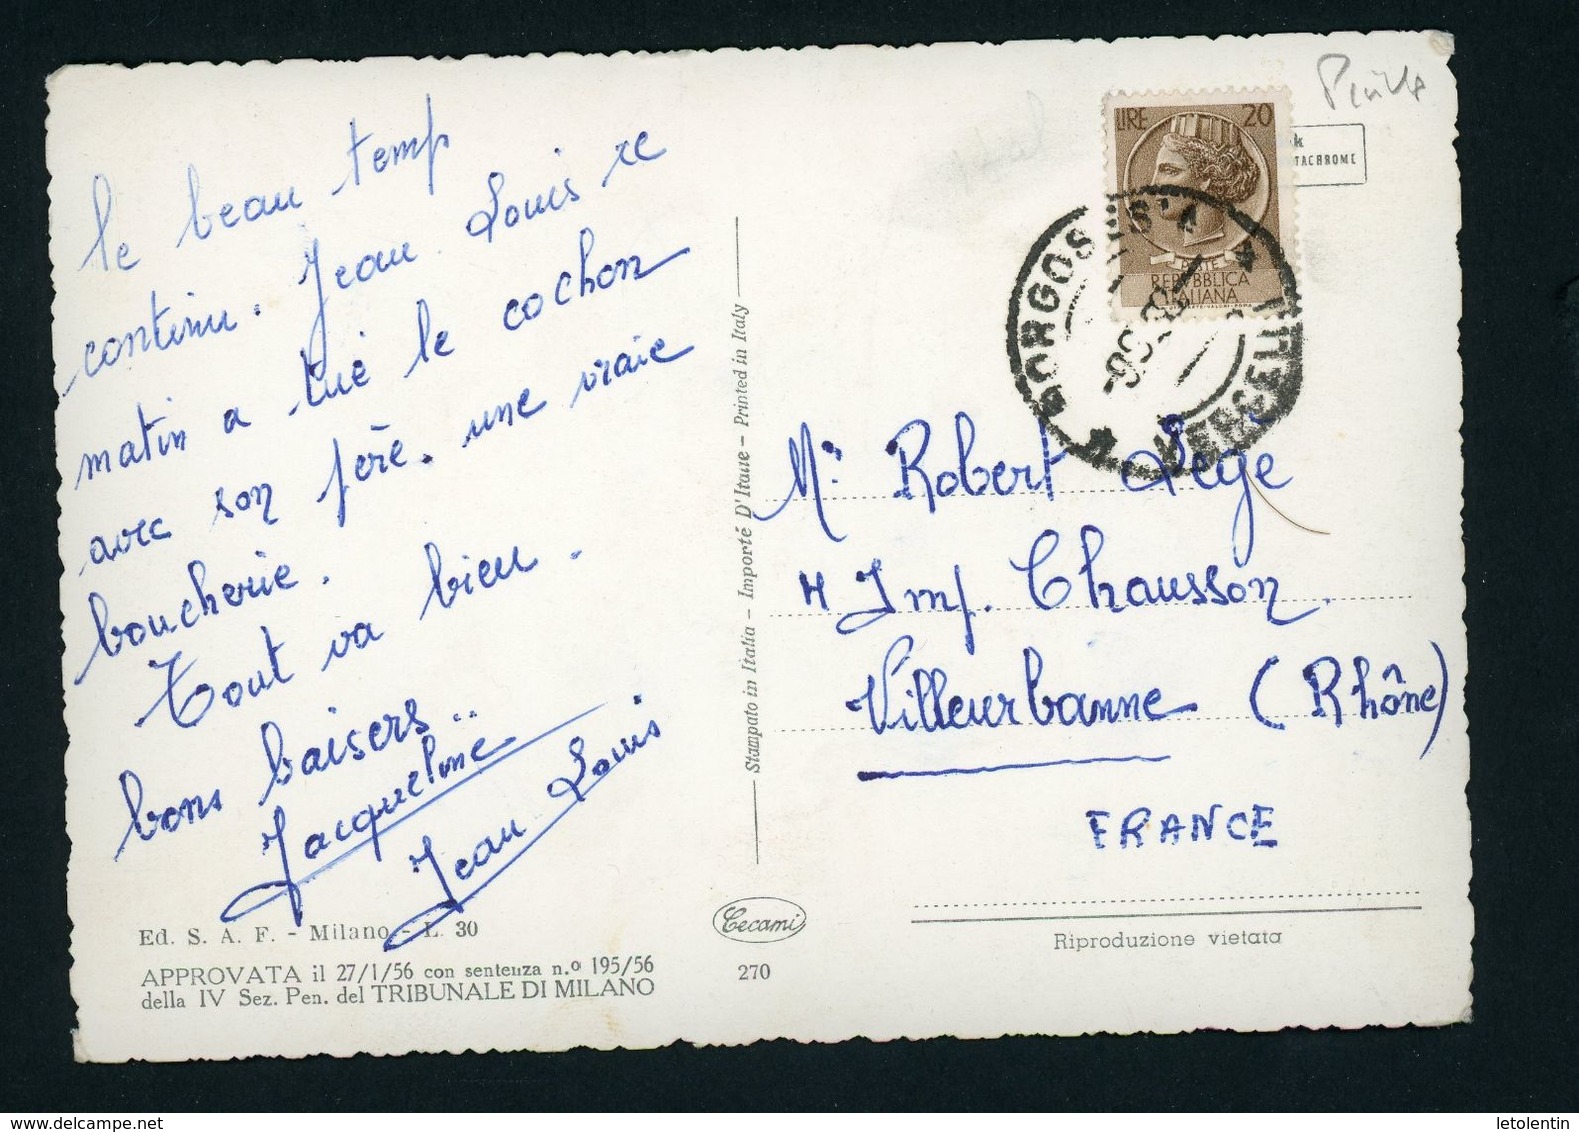 le beau temp
continu. Jean. Louis ce
matin a tué le cochon
avec son père. une vraie
boucherie.
Tout va bien.
bons baisers..
Jacqueline
Jean Louis
Ed. S. A. F. - Milano - L. 30
APPROVATA il 27/1/56 con sentenza n.º 195/56
della IV Sez. Pen. del TRIBUNALE DI MILANO
Stampato in Italia - Importé D'Italie - Printed in Italy
Cecami
270
LIRE 20
POSTE
REPUBBLICA
ITALIANA
k
TACHROME
BORGOSESIA
VERCELLI
Mr Robert Legè
4 Imp. Chausson
Villeurbanne (Rhône)
FRANCE
Riproduzione vietata
letolentin